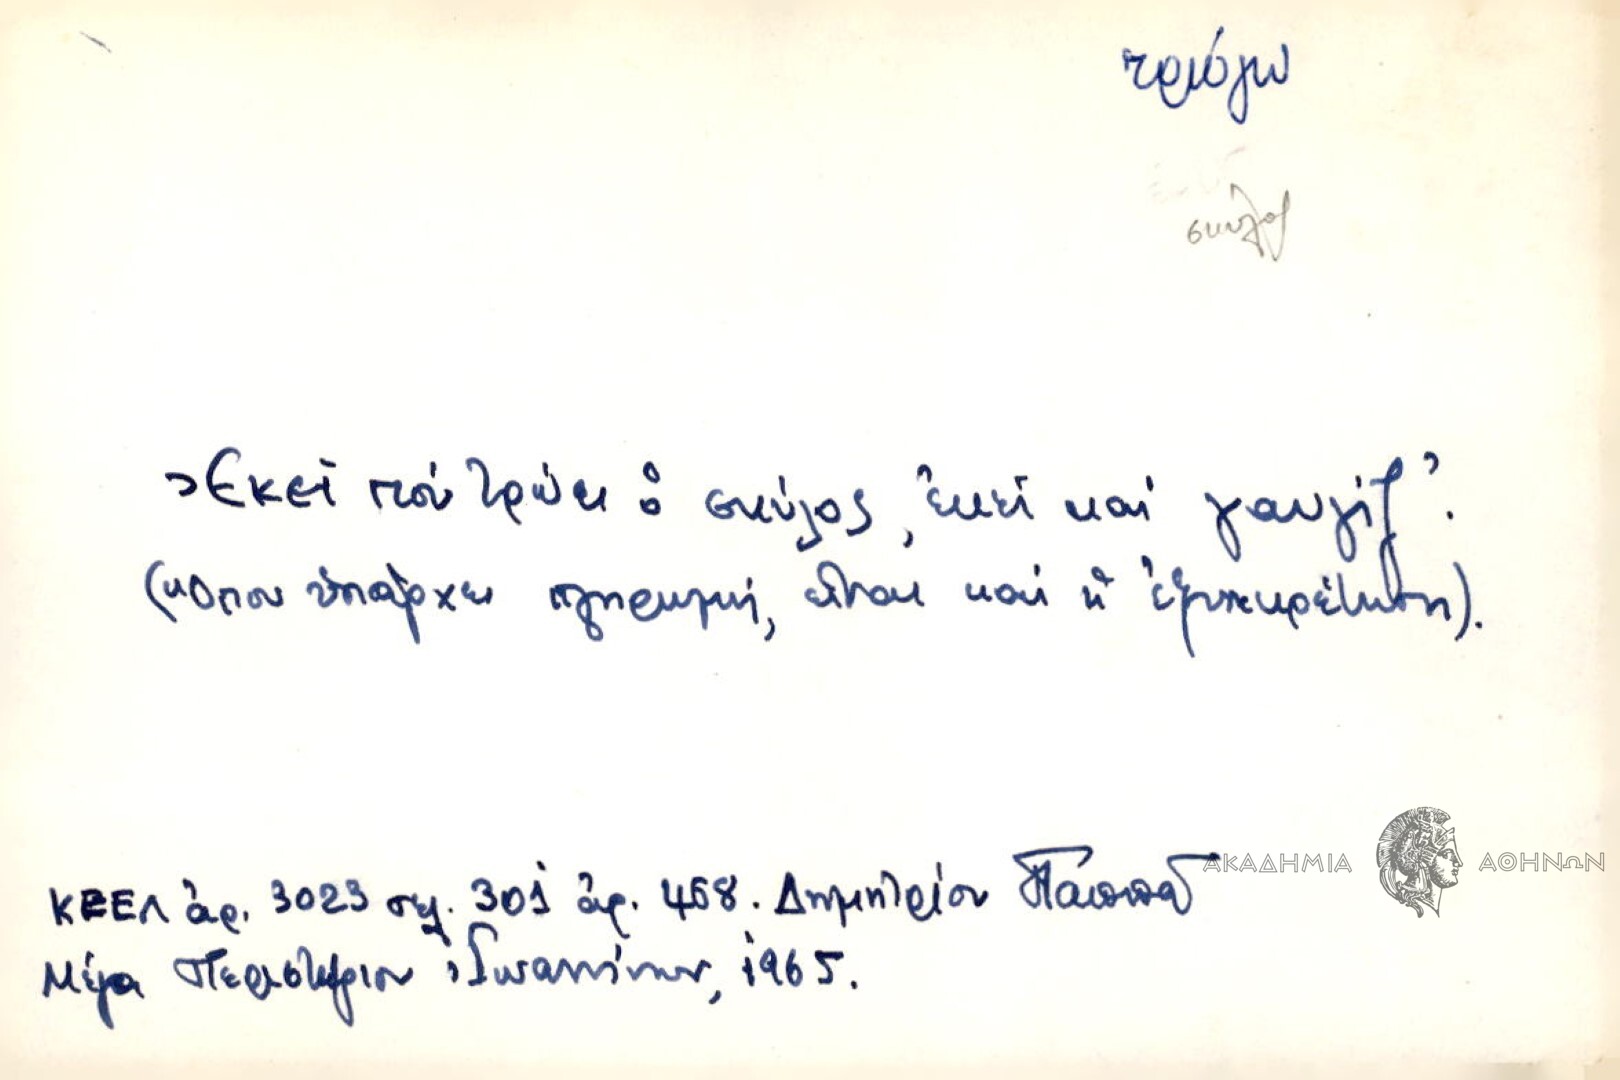 τρώγω
σκύλος
Ἐκεῖ πού τρώει ὁ σκύλος, ἐκεῖ καί γαυγίζ'.
(Ὅπου ὑπάρχει πληρωμή, εἶναι καί ἡ ἐξυπηρέτηση).
ΑΚΑΔΗΜΙΑ ΑΘΗΝΩΝ
ΚΕΕΛ ἀρ. 3023 σελ. 301 ἀρ. 468. Δημητρίου Παππᾶ
Μέγα Περιστέριον Ἰωαννίνων, 1965.